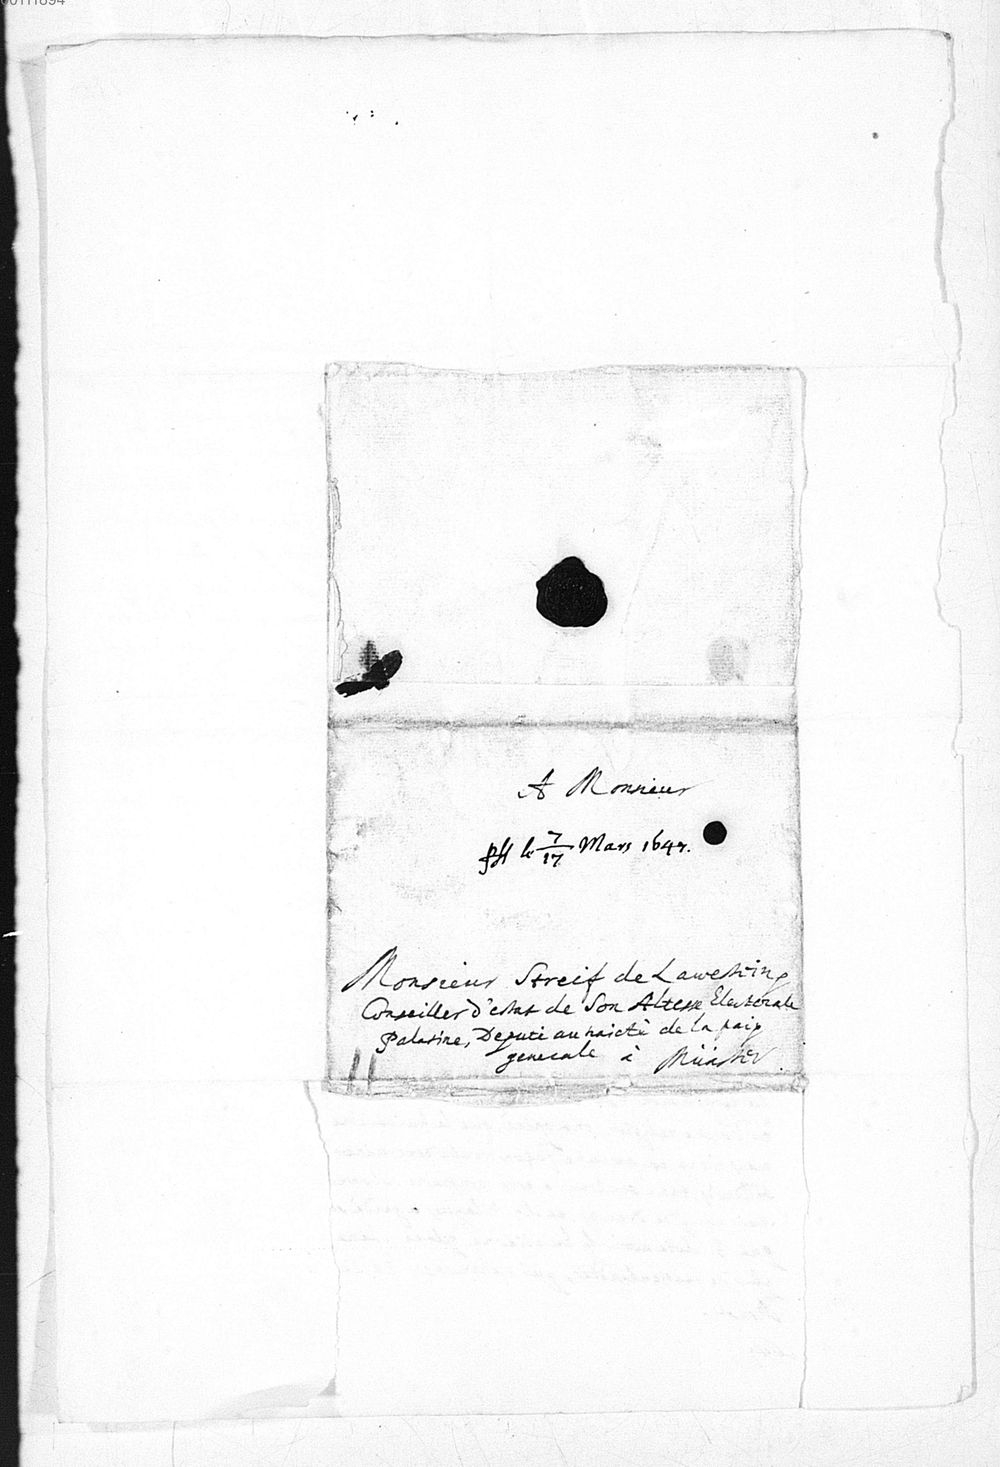 A Monsieur
le 7/17 Mars 1647.
Monsieur Streif de Lawenstein
Conseiller d'estat de Son Altesse Electorale
Palatine, Deputé au traicté de la paix
generale à Münster.